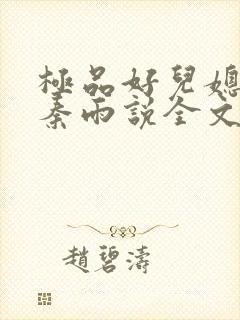 極品好兒媳
秦雨説全文
趙碧濤